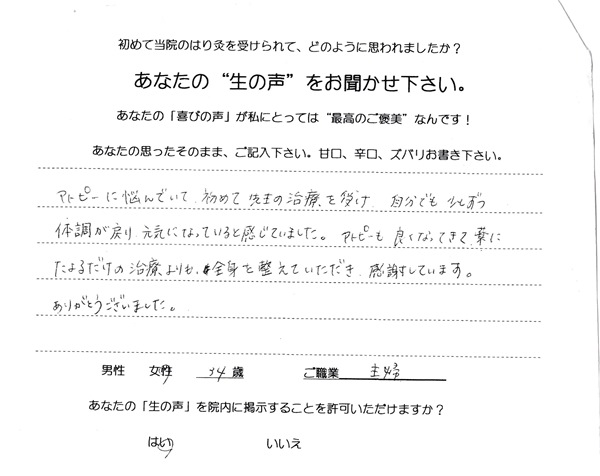 初めて当院のはり灸を受けられて、どのように思われましたか？
あなたの“生の声”をお聞かせ下さい。
あなたの「喜びの声」が私にとっては“最高のご褒美”なんです！
あなたの思ったそのまま、ご記入下さい。甘口、辛口、ズバリお書き下さい。
アトピーに悩んでいて、初めて先生の治療を受け、自分でも少しずつ
体調が戻り、元気になっていると感じていました。アトピーも良くなってきて、薬に
たよるだけの治療よりも、全身を整えていただき、感謝しています。
ありがとうございました。
男性 女性 34歳 ご職業 主婦
あなたの「生の声」を院内に掲示することを許可いただけますか？
はい いいえ